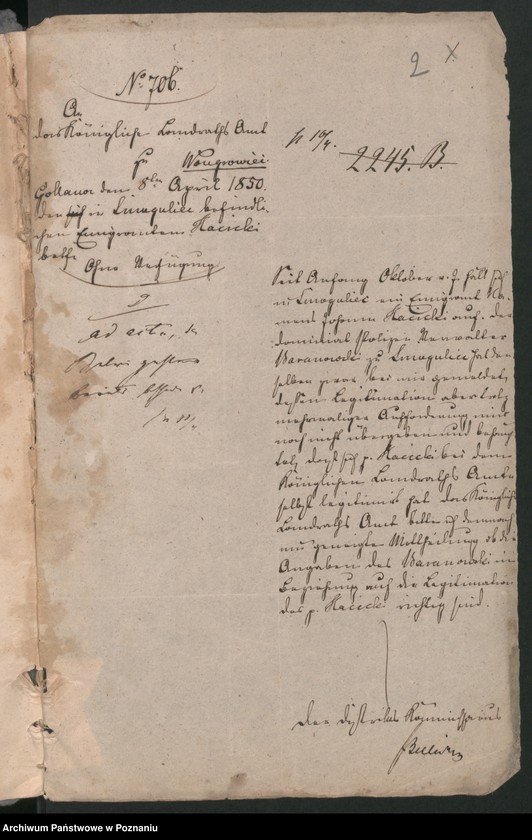 2 X
No 706.
An
das Königliche Landraths Amt
zu Wongrowiec.
Gollancz den 8ten April 1850.
den in Smogulec befindli-
chen Emigranten Kacicki
betf
Ohne Verfügung
p 10/4.
2245. B.
ad acta,
Seit Anfang Oktober v. J. hält sich
in Smogulec ein Emigrant Na-
mens Johann Kacicki auf. Der
dominial Polizei Verwalter
Baranowski zu Smogulec hat den
selben zwar bei mir gemeldet,
dessen Legitimation aber trotz
mehrmaliger Aufforderung mir
noch nicht übergeben und behaup
tet, daß sich p. Kacicki bei dem
Königlichen Landraths Amte
selbst legitimirt hat. das Königliche
Landraths Amt bitte ich demnach
um geneigte Mittheilung ob die
Angaben des Baranowski in
Beziehung auf die Legitimation
des p. Kacicki richtig sind.
Der Distrikts Kommissarius
Archiwum Państwowe w Poznaniu